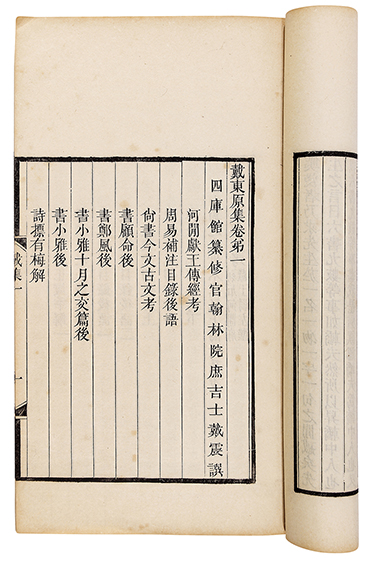 戴東原集卷第一
四庫館纂修官翰林院庶吉士戴震譔
河間獻王傳經考
周易補注目錄後語
尙書今文古文考
書顧命後
書鄭風後
書小雅十月之交篇後
書小雅後
詩摽有梅解
戴集一
一